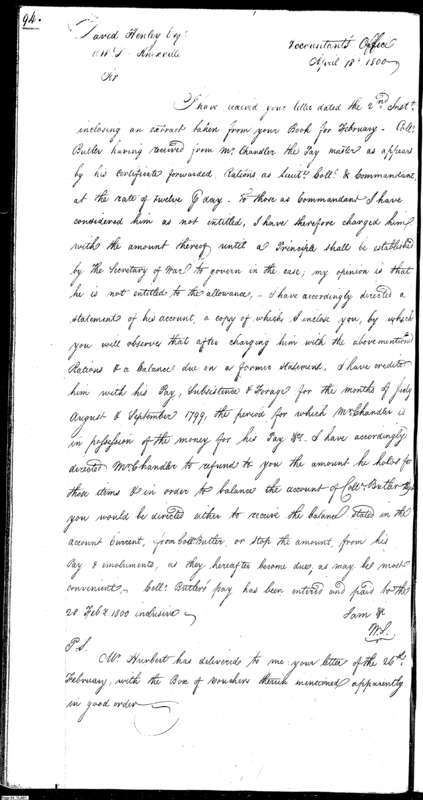 94.
David Henley Esqr.
Knoxville
Accountant's Office
April 18th 1800
Sir
I have received your letter dated the 2nd Inst.
inclosing an extract taken from your Book for February - Coll.
Butler having received from Mr. Chandler the Pay master as appears
by his Certificate forwarded. Rations as Lieut. Coll. & Commandant,
at the rate of twelve day - To those as Commandant I have
considered him as not entitled, I have therefore charged him
with the amount thereof until a Principle shall be established
by the Secretary of War to govern in the case; my opinion is that
he is not entitled to the allowance, - I have accordingly directed a
statement of his account, a copy of which I inclose you, by which
you will observe that after charging him with the abovementioned
Rations & a balance due on a former statement, I have credited
him with his Pay, Subsistence & Forage for the months of July
August & September 1799, the period for which Mr. Chandler is
in possession of the money for his Pay &c. I have accordingly
directed Mr. Chandler to refund to you the amount he holds for
those items & in order to balance the account of Coll. Butler
you would be directed either to receive the balance stated in the
account Current, from Coll. Butler, or stop the amount, from his
Pay & emoluments, as they hereafter become due, as may be most
convenient, - Coll. Butler's pay has been entered and paid to the
28 Feby 1800 inclusive
I am &c
W.S.
P.S.
Mr. Hurlbert has delivered to me your letter of the 26th.
February, with the Box of vouchers therein mentioned apparently
in good order